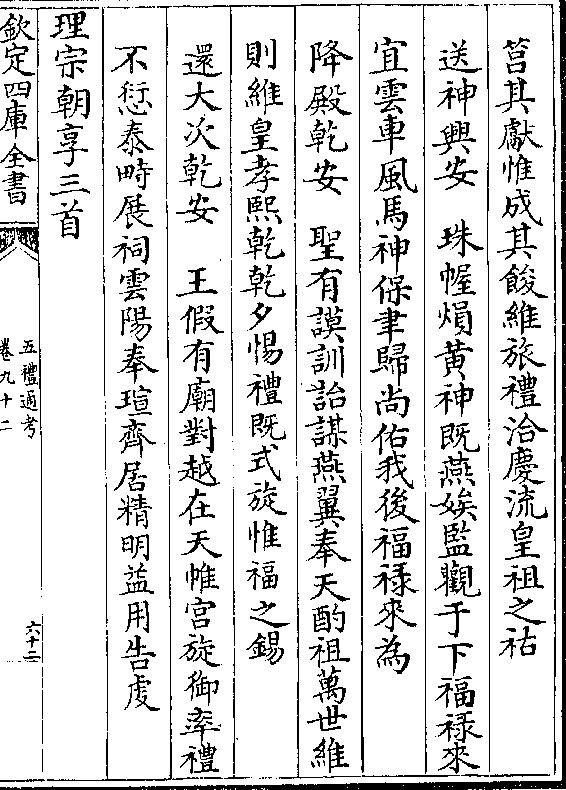 莒其獻惟成其餕維旅禮洽慶流皇祖之祜
送神興安　珠幄熉黃神既燕娭監觀于下福祿來
宜雲車風馬神保聿歸尚佑我後福祿來為
降殿乾安　聖有謨訓詒謀燕翼奉天酌祖萬世維
則維皇孝熙乾乾夕惕禮既式旋惟福之錫
還大次乾安　王假有廟對越在天帷宮旋御率禮
不愆泰畤展祠雲陽奉瑄齊居精明益用告虔
理宗朝享三首
欽定四庫全書
五禮通考
卷九十二
六十二